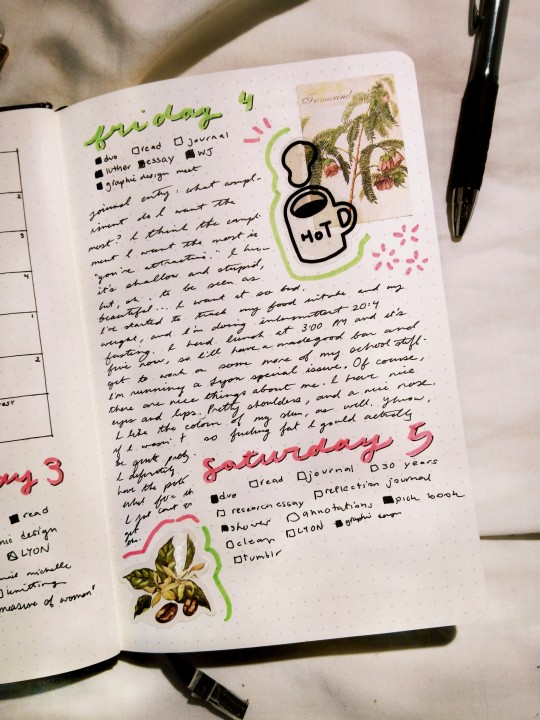 friday 4
■ duo □ read □ journal
■ luther ■ essay ■ WJ
■ graphic design meet
Tamarind
HOT
journal entry: what compl-
iment do I want the
most? I think the compl
ment I want the most is
"you're attractive.. I know
it's shallow and stupid,
but, oh.. to be seen as
beautiful... I want it so bad.
I've started to track my food intake and my
weight, and I'm doing intermittent 20:4
fasting. I had lunch at 3:00 PM and it's
five now, so I'll have a madegood bar and
get to work on some more of my school stuff.
I'm running a Lyon special issue. Of course,
there are nice things about me. I have nice
eyes and lips. Pretty shoulders, and a nice nose.
I like the colour of my skin, as well. Yknow,
if I wasn't so fucking fat I could actually
be quite pretty.
I definitely
have the
what
I just
get
saturday 5
■ duo □ read □ journal □ 30 years
□ research essay □ reflection journal
■ shower □ annotations ■ pick book
□ clean □ LYON ■ graphic
□ tumblr
ay 3
■ read
design
☒ LYON
michelle
□ knitting
measure of women"